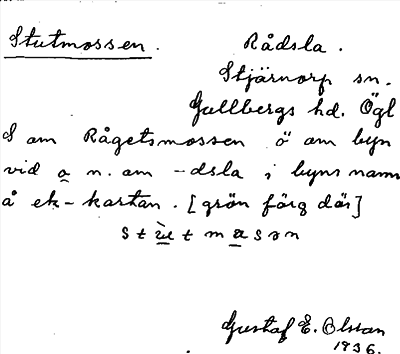 Stutmossen.
Rådsla.
Stjärnorp sn.
Gullbergs hd. Ögl
S om Rågetsmossen ö om byn
vid o n. om -dsla i byns namn
å ek-kartan. [grön färg där]
s t ù t m a s ə n
Gustaf E. Olsson
1936.